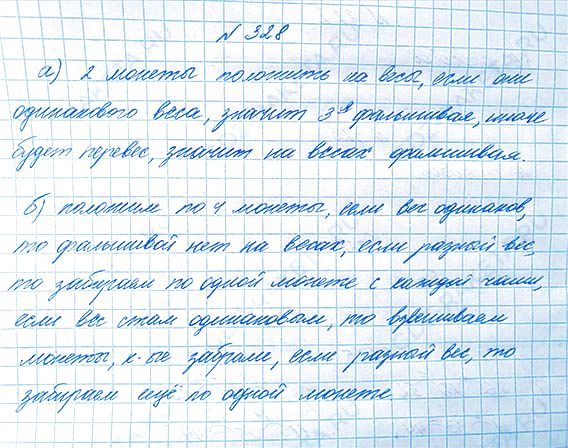 № 328
а) 2 монеты положить на весы, если они
одинакового веса, значит 3я фальшивая, иначе
будет перевес, значит на весах фальшивая.
б) положим по 4 монеты, если вес одинаков,
то фальшивой нет на весах, если разный вес,
то забираем по одной монете с каждой чаши,
если вес стал одинаковым, то взвешиваем
монеты, к-ые забрали, если разный вес, то
забираем ещё по одной монете